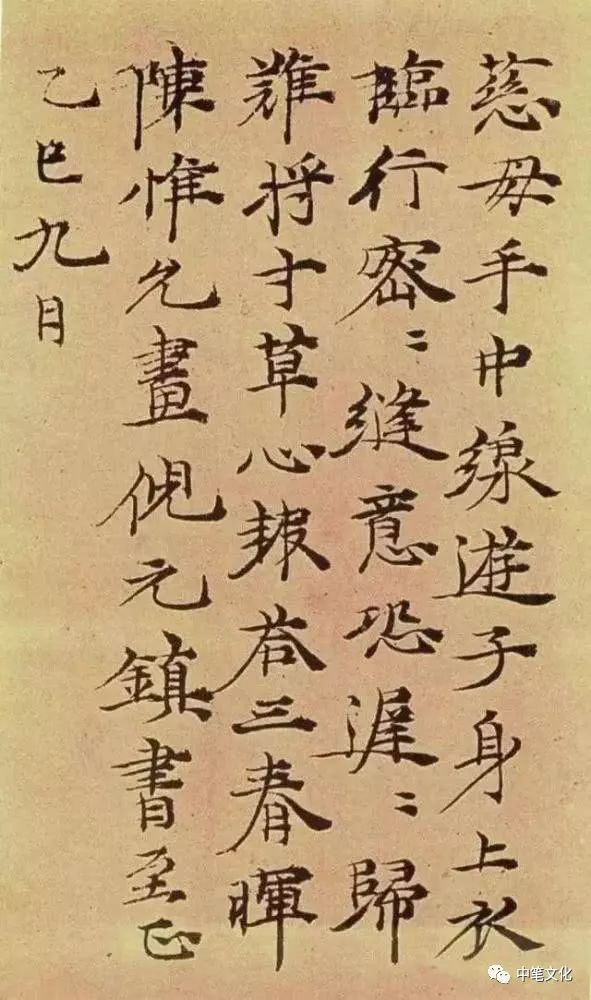 慈母手中線遊子身上衣
臨行密〻縫意恐遲〻歸
難將寸草心報荅三春暉
陳惟允畫倪元鎮書至正
乙巳九月
中笔文化